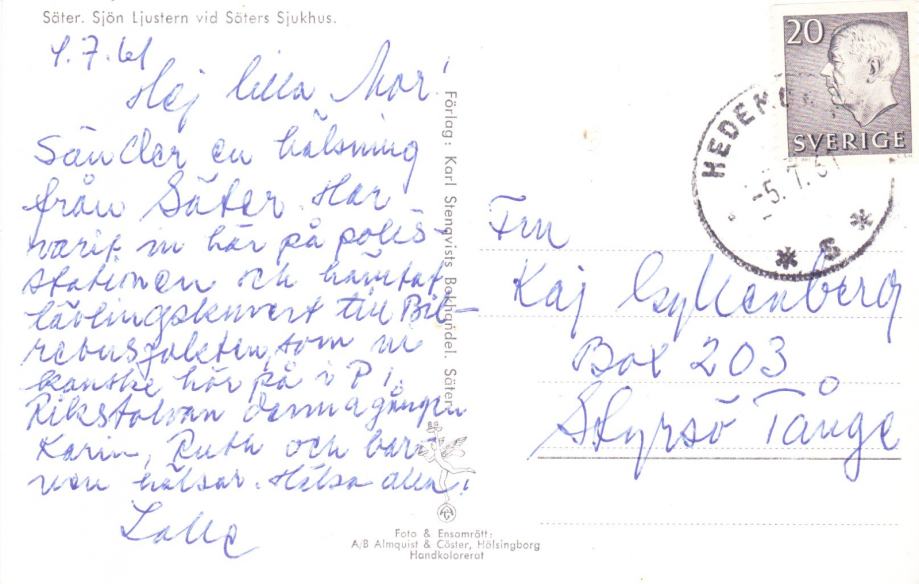 Säter. Sjön Ljustern vid Säters Sjukhus.
4.7.61
Hej lilla Mor!
Sänder en hälsning
från Säter. Har
varit in här på polis-
stationen och hämtat
tävlingskuvert till Bil-
rebusjakten, som ni
kanske hör på i P1.
Rikstolvan denna gången
Karin, Ruth och bar-
nen hälsar. Hälsa alla!
Lalle
Förlag: Karl Stenqvists Bokhandel. Säter.
Foto & Ensamrätt:
A/B Almquist & Cöster, Hälsingborg
Handkolorerat
20
SVERIGE
HEDEMORA
-5.7.61
* S *
Fru
Kaj Gyllenberg
Box 203
Styrsö Tånge